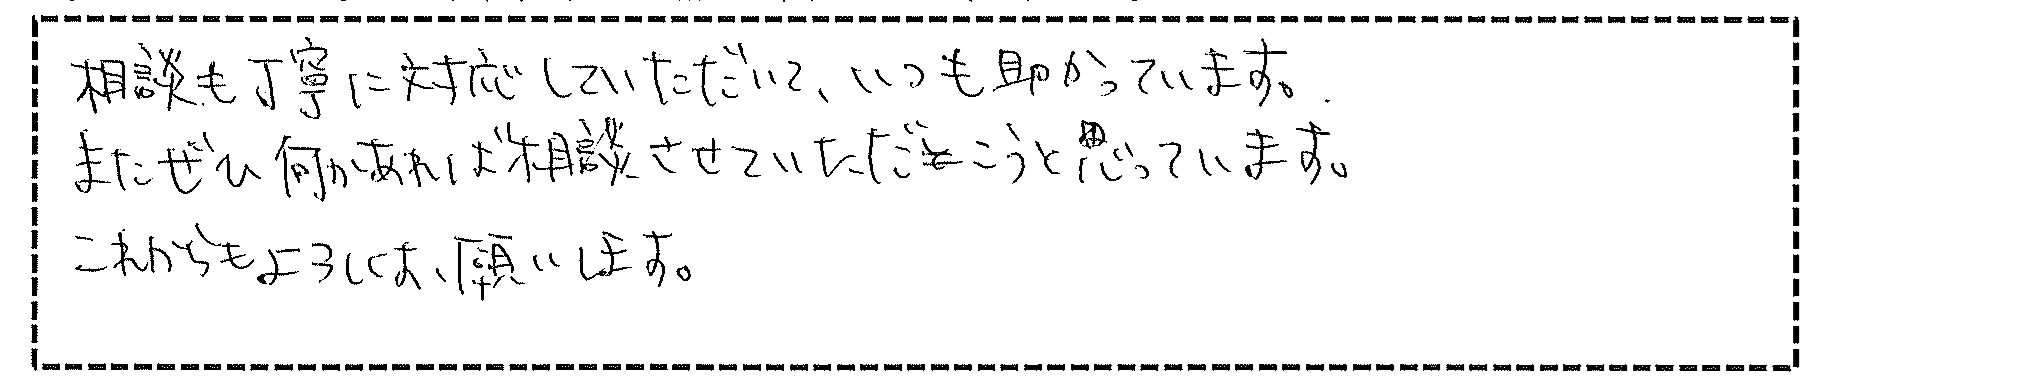 相談も丁寧に対応していただいて、いつも助かっています。
またぜひ何かあれば相談させていただこうと思っています。
これからもよろしくお願いします。